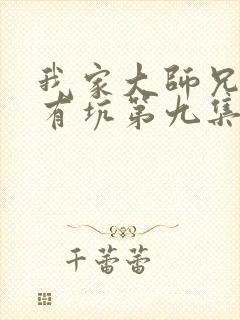 我家大師兄
有坑第九集
千蕾蕾